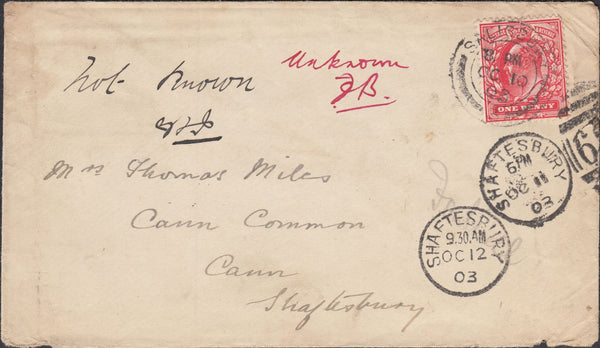 Unknown
JB.
Not Known
Mrs Thomas Miles
Cann Common
Cann
Shaftesbury
ONE PENNY
8 PM
OC 10
03
SHAFTESBURY
6 PM
OC 11
03
SHAFTESBURY
9.30.AM
OC 12
03